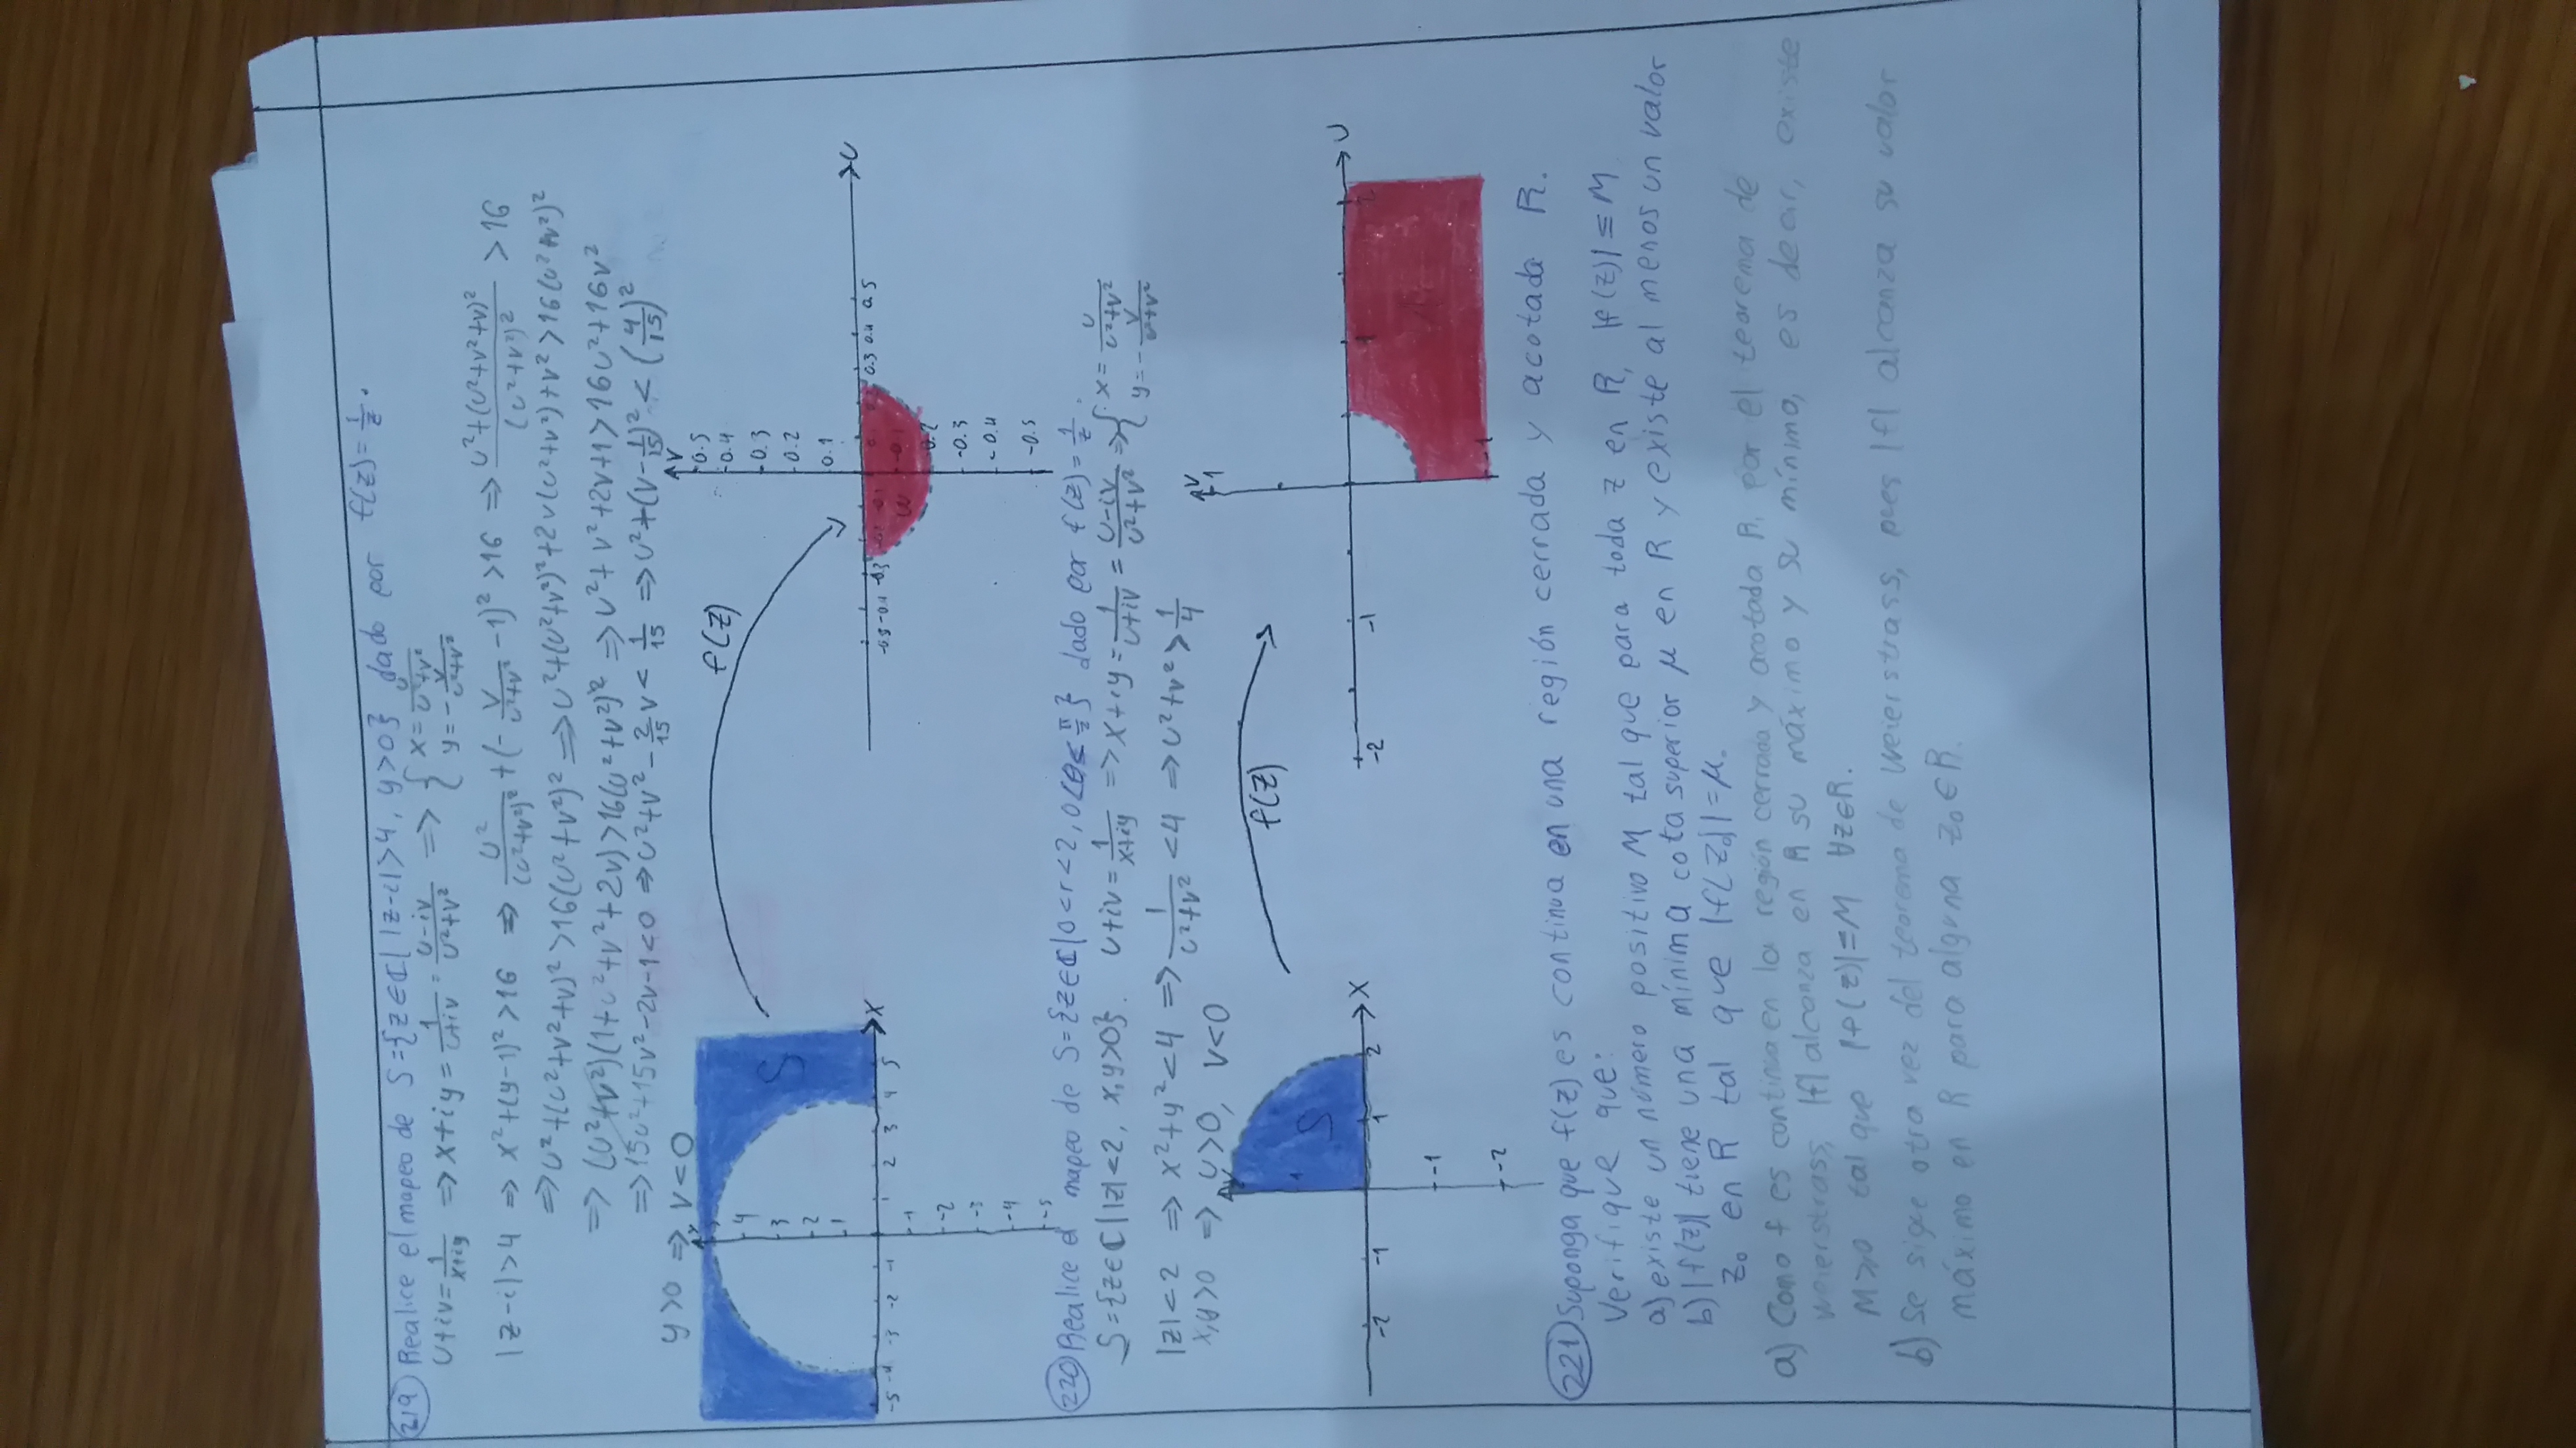 219) Realice el mapeo de S={z∈ℂ| |z-i|>4, y>0} dado por f(z)=1/z.
u+iv=1/(x+iy) ⇒ x+iy=1/(u+iv)=(u-iv)/(u²+v²) ⇒ { x=u/(u²+v²)
y=-v/(u²+v²)
|z-i|>4 ⇒ x²+(y-1)²>16 ⇒ u²/(u²+v²)²+(-v/(u²+v²)-1)²>16 ⇒ (u²+(u²+v²+v)²)/(u²+v²)² >16
⇒u²+(u²+v²+v)²>16(u²+v²)² ⇒u²+(u²+v²)²+2v(u²+v²)+v²>16(u²+v²)²
⇒ (u²+v²)(1+u²+v²+2v)>16(u²+v²)² ⇒u²+v²+2v+1>16u²+16v²
⇒15u²+15v²-2v-1<0 ⇒u²+v²-2/15 v<1/15 ⇒u²+(v-1/15)²<(4/15)²
y>0 ⇒ v<0
f(z)
S
4
3
2
1
-5 -4 -3 -2 -1 1 2 3 4 5 X
-1
-2
-3
-4
-5
V
0.5
0.4
0.3
0.2
0.1
0.3 0.4 0.5 U
-0.1
-0.2
-0.3
-0.4
-0.5
220) Realice el mapeo de S={z∈ℂ|0<r<2, 0<θ<π/2} dado por f(z)=1/z.
S={z∈ℂ||z|<2, x,y>0}. u+iv=1/(x+iy) ⇒x+iy=1/(u+iv)=(u-iv)/(u²+v²) ⇒{ x=u/(u²+v²)
y=-v/(u²+v²)
|z|<2 ⇒ x²+y²<4 ⇒1/(u²+v²)<4 ⇒u²+v²>1/4
x,y>0 ⇒ u>0, v<0
f(z)
y
1
S
-2 -1 1 2 X
-1
-2
V
1
-2 -1 1 2 U
-1
221) Suponga que f(z) es continua en una región cerrada y acotada R.
Verifique que:
a) existe un número positivo M tal que para toda z en R, |f(z)|≤M
b) |f(z)| tiene una mínima cota superior μ en R y existe al menos un valor
z₀ en R tal que |f(z₀)|=μ.
a) Como f es continua en la región cerrada y acotada R, por el teorema de
Weierstrass, |f| alcanza en R su máximo y su mínimo, es decir, existe
M≥0 tal que |f(z)|≤M ∀z∈R.
b) Se sigue otra vez del teorema de Weierstrass, pues |f| alcanza su valor
máximo en R para alguna z₀∈R.